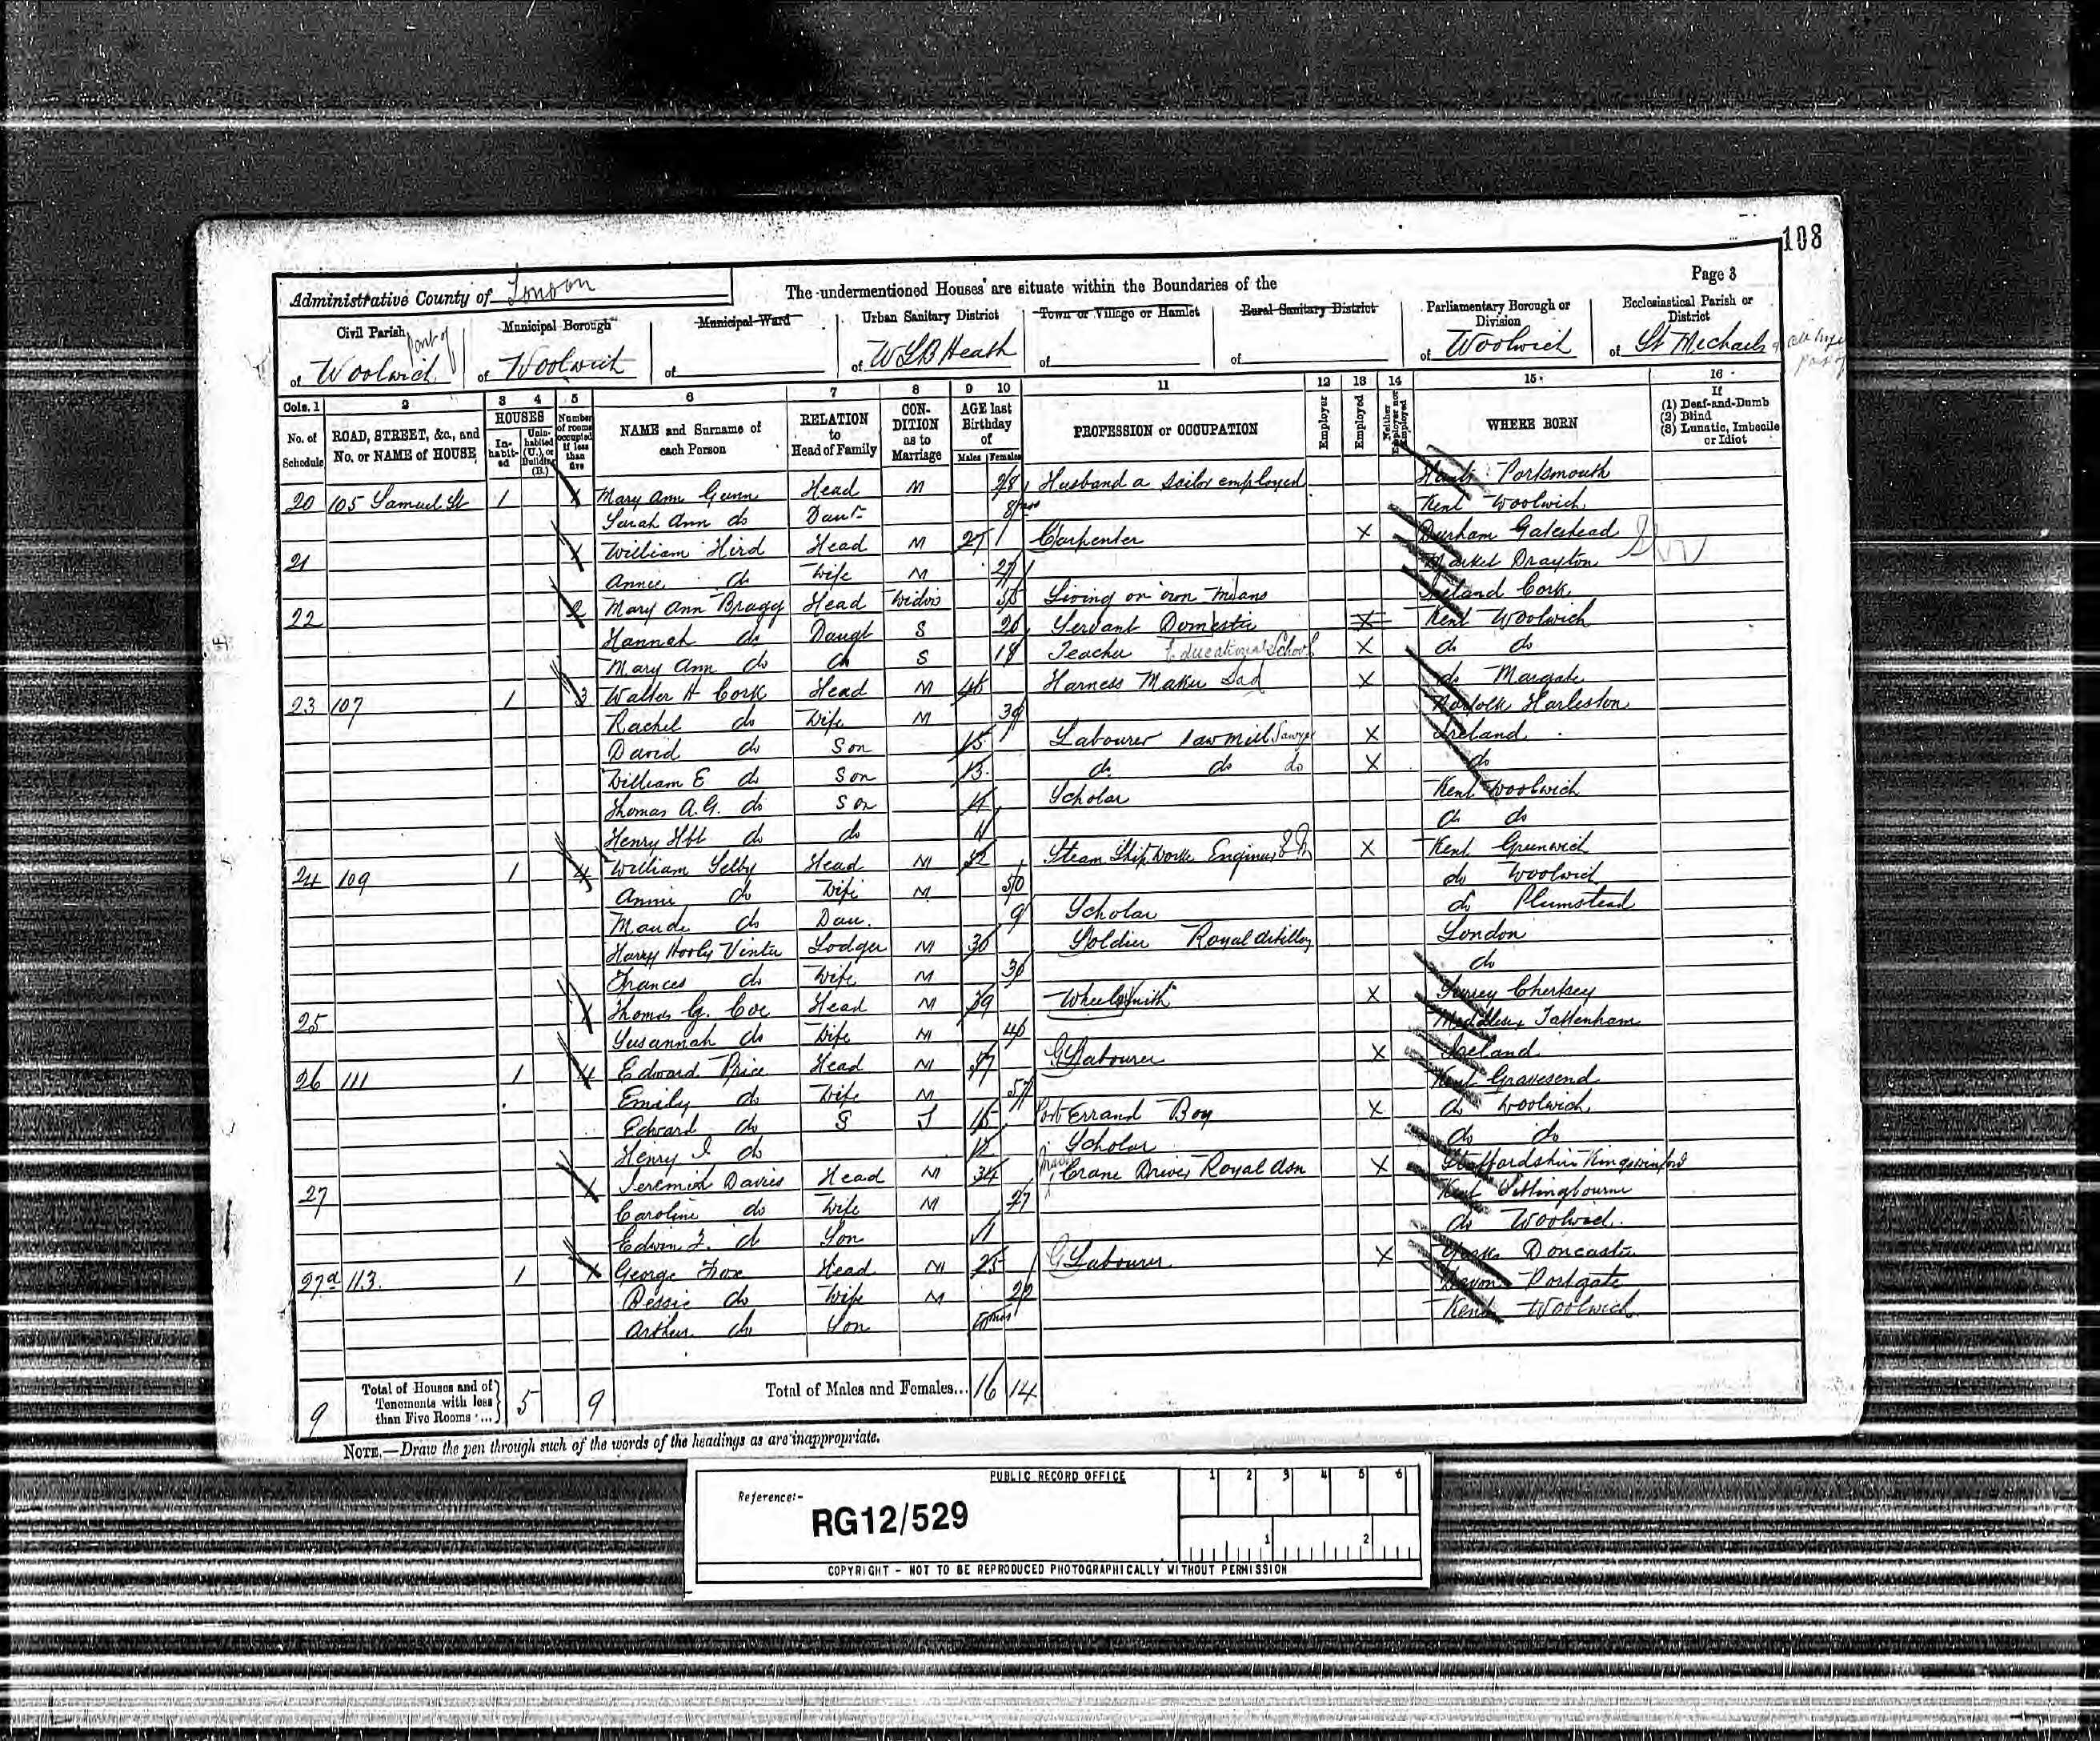 108
Page 3
Administrative County of London
The undermentioned Houses are situate within the Boundaries of the
Civil Parish
part of
of Woolwich
Municipal Borough
of Woolwich
Municipal Ward
of
Urban Sanitary District
of W L B Heath
Town or Village or Hamlet
of
Rural Sanitary District
of
Parliamentary Borough or Division
of Woolwich
Ecclesiastical Parish or District
of St Michaels
Cols. 1 2 3 4 5 6 7 8 9 10 11 12 13 14 15 16
No. of Schedule
ROAD, STREET, &c., and No. or NAME of HOUSE
HOUSES
In-habit-ed
Unin-habited (U.), or Building (B.)
Number of rooms occupied if less than five
NAME and Surname of each Person
RELATION to Head of Family
CON-DITION as to Marriage
AGE last Birthday of
Males Females
PROFESSION or OCCUPATION
Employer
Employed
Neither Employer nor Employed
WHERE BORN
If
(1) Deaf-and-Dumb
(2) Blind
(3) Lunatic, Imbecile or Idiot
20 105 Samuel St 1 Mary Ann Gunn Head M 28 Husband a Sailor employed Hants Portsmouth
Sarah Ann do Daur 8 mos Kent Woolwich
21 William Hird Head M 27 Carpenter X Durham Gateshead
Annie do Wife M 27 Market Drayton
22 2 Mary Ann Bragg Head Widow Living on own Means Ireland Cork
Hannah do Daugt S 20 Servant Domestic X Kent Woolwich
Mary Ann do do S 18 Teacher Educational School X do do
23 107 1 3 Walter H Cork Head M 46 Harness Maker Sad X do Margate
Rachel do Wife M 39 Norfolk Harleston
David do Son 15 Labourer Saw mill Sawyer X Ireland
William E do Son 13 do do do X do
Thomas A.G. do Son Scholar Kent Woolwich
Henry Hbt do do do do
24 109 1 4 William Selby Head M 52 Steam Ship Works Engineer X Kent Greenwich
Annie do Wife M 50 do Woolwich
Maude do Dau. 9 Scholar do Plumstead
Harry Vinter Lodger M 30 Soldier Royal Artillery London
Frances do Wife M 30 do
25 Thomas G. Coe Head M 39 Wheelsmith X Surrey Chertsey
Susannah do Wife M 40 Middlesex Tottenham
26 111 1 4 Edward Price Head M G Labourer X Ireland
Emily do Wife M 57 Kent Gravesend
Edward do S S 15 Errand Boy X do Woolwich
Henry J do 12 Scholar do do
27 Jeremiah Davies Head M 34 Crane Driver Royal Asn X Staffordshire Kingswinford
Caroline do Wife M 27 Kent Sittingbourne
Edwin J. do Son 1 do Woolwich
27a 113. 1 George Fox Head M 25 G Labourer X Yorks Doncaster
Bessie do Wife M 22 Devon Portgate
Arthur do Son mos Kent Woolwich
9 Total of Houses and of Tenements with less than Five Rooms .... 5 9 Total of Males and Females... 16 14
NOTE.—Draw the pen through such of the words of the headings as are inappropriate.
PUBLIC RECORD OFFICE
Reference:-
RG12/529
1 2 3 4 5 6
1 2
COPYRIGHT - NOT TO BE REPRODUCED PHOTOGRAPHICALLY WITHOUT PERMISSION